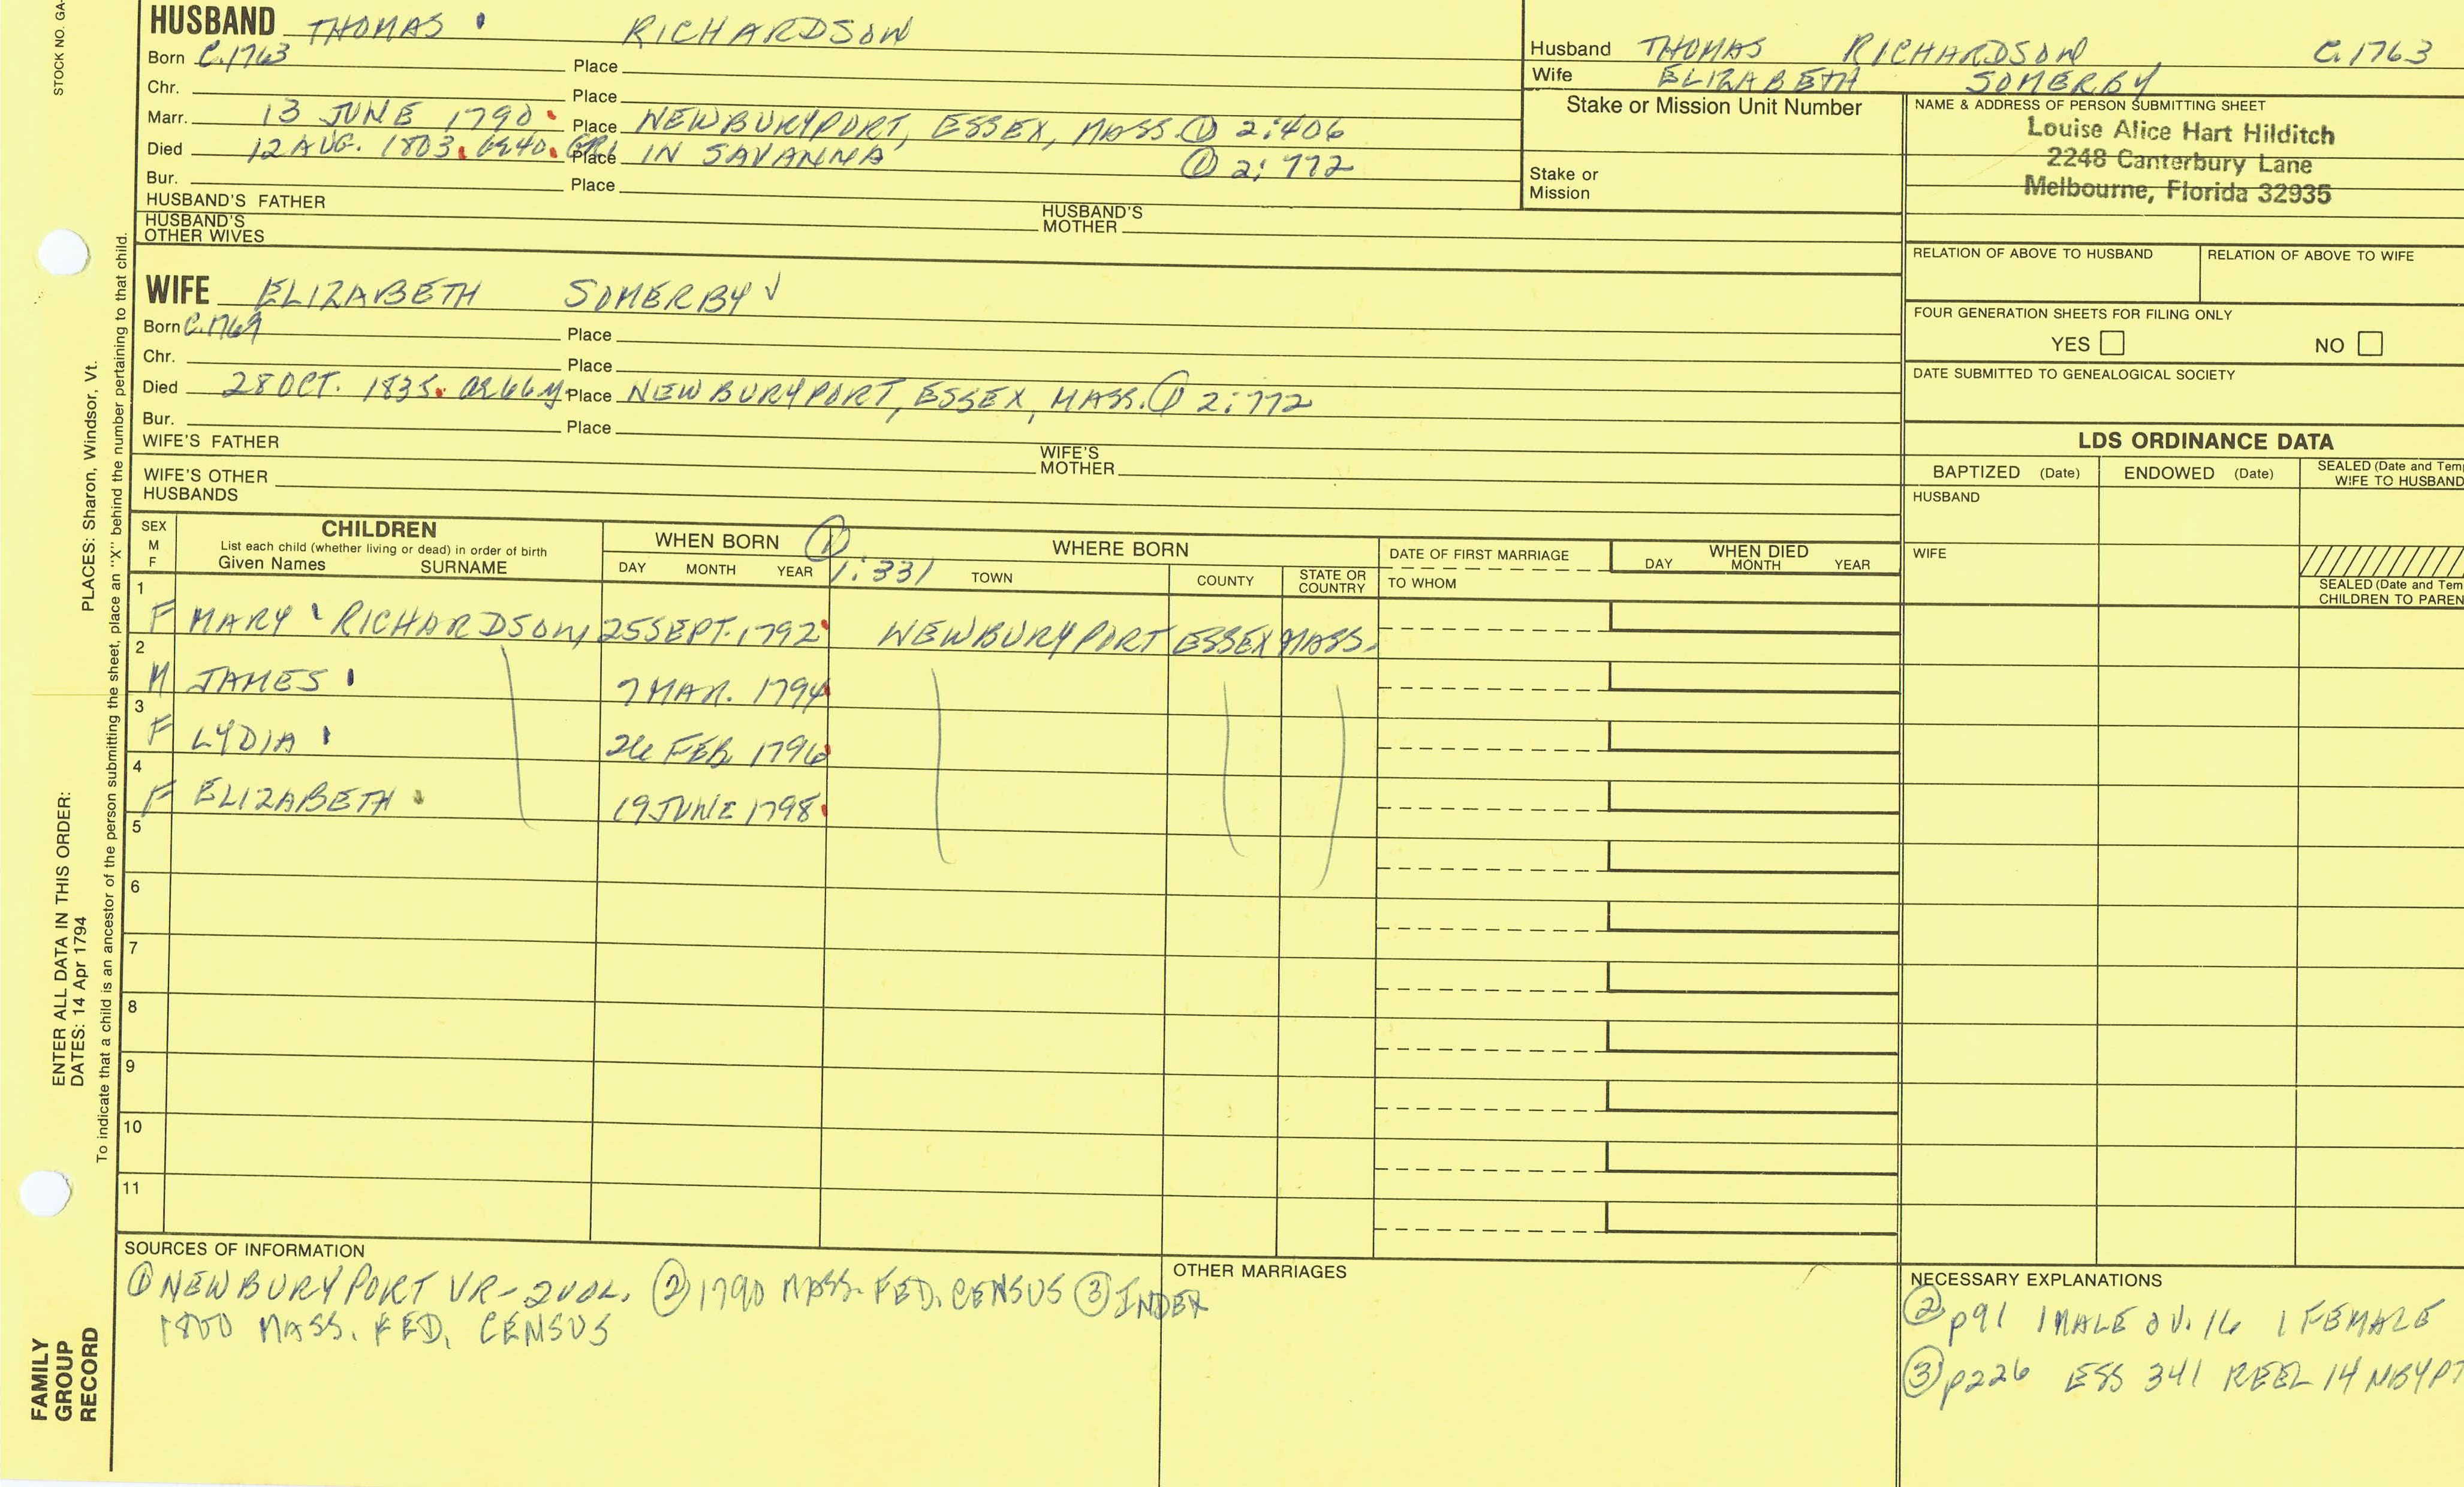 STOCK NO. GA-
HUSBAND THOMAS RICHARDSON
Born C.1763 Place
Chr. Place
Marr. 13 JUNE 1790. Place NEWBURYPORT, ESSEX, MASS. ① 2:406
Died 12 AUG. 1803. Place IN SAVANNA ① 2:772
Bur. Place
HUSBAND'S FATHER HUSBAND'S MOTHER
HUSBAND'S OTHER WIVES
Husband THOMAS RICHARDSON C.1763
Wife ELIZABETH SOMERBY
Stake or Mission Unit Number
Stake or
Mission
NAME & ADDRESS OF PERSON SUBMITTING SHEET
Louise Alice Hart Hilditch
2248 Canterbury Lane
Melbourne, Florida 32935
RELATION OF ABOVE TO HUSBAND RELATION OF ABOVE TO WIFE
FOUR GENERATION SHEETS FOR FILING ONLY
YES NO
DATE SUBMITTED TO GENEALOGICAL SOCIETY
WIFE ELIZABETH SOMERBY ✓
Born C.1769 Place
Chr. Place
Died 28 OCT. 1835. Æ66y. Place NEWBURYPORT, ESSEX, MASS. ① 2:772
Bur. Place
WIFE'S FATHER WIFE'S MOTHER
WIFE'S OTHER
HUSBANDS
LDS ORDINANCE DATA
BAPTIZED (Date) ENDOWED (Date) SEALED (Date and Tem
WIFE TO HUSBAND
HUSBAND
WIFE
SEALED (Date and Tem
CHILDREN TO PAREN
SEX
M
F
CHILDREN
List each child (whether living or dead) in order of birth
Given Names SURNAME
WHEN BORN ①
DAY MONTH YEAR 1:331
WHERE BORN
TOWN COUNTY STATE OR COUNTRY
DATE OF FIRST MARRIAGE
TO WHOM
WHEN DIED
DAY MONTH YEAR
1 F MARY RICHARDSON 25 SEPT. 1792 NEWBURYPORT ESSEX MASS.
2 M JAMES 7 MAR. 1794
3 F LYDIA 26 FEB 1796
4 F ELIZABETH 19 JUNE 1798
5
6
7
8
9
10
11
SOURCES OF INFORMATION
① NEWBURYPORT VR - 2 VOL. ② 1790 MASS. FED. CENSUS ③ INDEX
1800 MASS. FED. CENSUS
OTHER MARRIAGES
NECESSARY EXPLANATIONS
② p91 1 MALE OV. 16 1 FEMALE
③ p226 ESS 341 REEL 14 NBYPT
PLACES: Sharon, Windsor, Vt.
ENTER ALL DATA IN THIS ORDER:
DATES: 14 Apr 1794
To indicate that a child is an ancestor of the person submitting the sheet, place an "X" behind the number pertaining to that child.
FAMILY
GROUP
RECORD